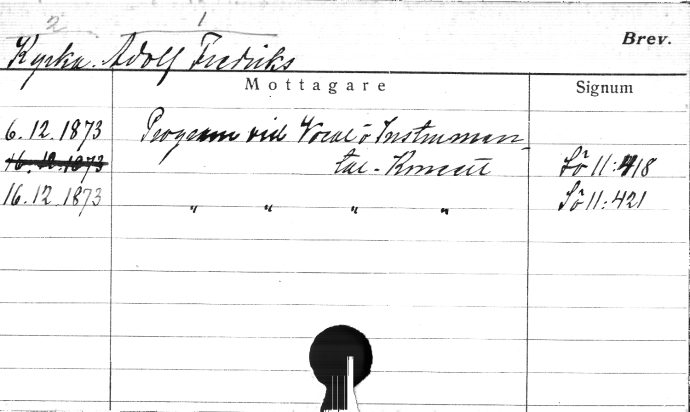 2 1
Brev.
Kyrka. Adolf Fredriks
Mottagare Signum
6.12.1873 Program vid Vocal o Instrumen-
16.12.1873 tal-Konsert Sö 11:418
16.12.1873 " " " " Sö 11:421